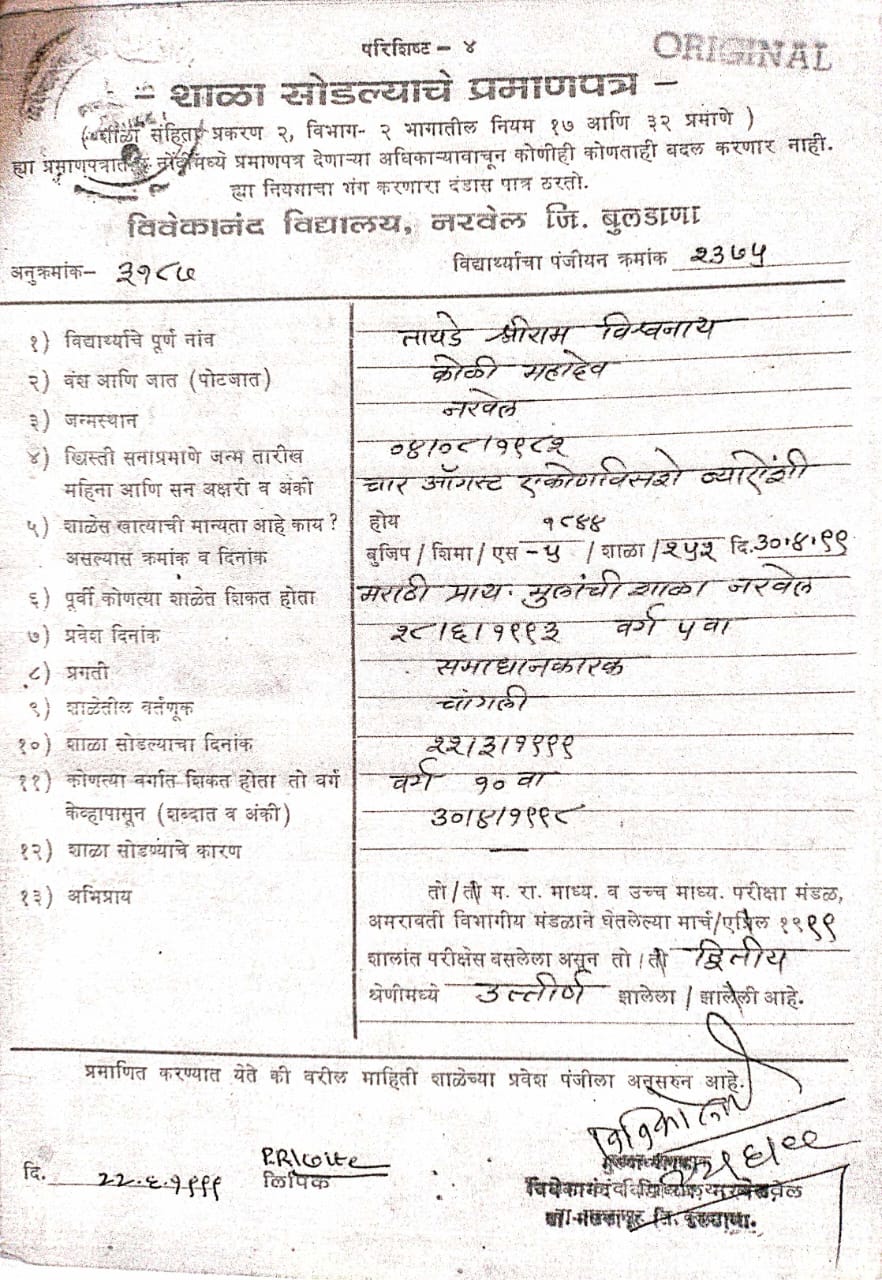 परिशिष्ट - ४
ORIGINAL
- शाळा सोडल्याचे प्रमाणपत्र -
( शाळा संहिता प्रकरण २, विभाग- २ भागातील नियम १७ आणि ३२ प्रमाणे )
ह्या प्रमाणपत्रात नोंदीमध्ये प्रमाणपत्र देणाऱ्या अधिकाऱ्यावाचून कोणीही कोणताही बदल करणार नाही.
ह्या नियमाचा भंग करणारा दंडास पात्र ठरतो.
विवेकानंद विद्यालय, नरवेल जि. बुलडाणा
अनुक्रमांक- ३१८७ विद्यार्थ्याचा पंजीयन क्रमांक २३७५
१) विद्यार्थ्याचे पूर्ण नांव तायडे श्रीराम विश्वनाथ
२) वंश आणि जात (पोटजात) कोळी महादेव
३) जन्मस्थान नरवेल
४) ख्रिस्ती सनाप्रमाणे जन्म तारीख ०४/०८/१९८२
महिना आणि सन अक्षरी व अंकी चार ऑगस्ट एकोणविसशे ब्याऐंशी
५) शाळेस खात्याची मान्यता आहे काय ? होय १८४४
असल्यास क्रमांक व दिनांक बुजिप / शिमा / एस - ५ / शाळा / २५२ दि. ३०.४.९९
६) पूर्वी कोणत्या शाळेत शिकत होता मराठी प्राथ. मुलांची शाळा नरवेल
७) प्रवेश दिनांक २८/६/१९९३ वर्ग ५ वा
८) प्रगती समाधानकारक
९) शाळेतील वर्तणूक चांगली
१०) शाळा सोडल्याचा दिनांक २२/३/१९९९
११) कोणत्या वर्गात शिकत होता तो वर्ग वर्ग १० वा
केव्हापासून (शब्दात व अंकी) ३०/४/१९९८
१२) शाळा सोडण्याचे कारण —
१३) अभिप्राय तो / ती म. रा. माध्य. व उच्च माध्य. परीक्षा मंडळ,
अमरावती विभागीय मंडळाने घेतलेल्या मार्च/एप्रिल १९९९
शालांत परीक्षेस बसलेला असून तो / ती द्वितीय
श्रेणीमध्ये उत्तीर्ण झालेला / झालेली आहे.
प्रमाणित करण्यात येते की वरील माहिती शाळेच्या प्रवेश पंजीला अनुसरुन आहे.
दि. २२.६.१९९९ लिपिक